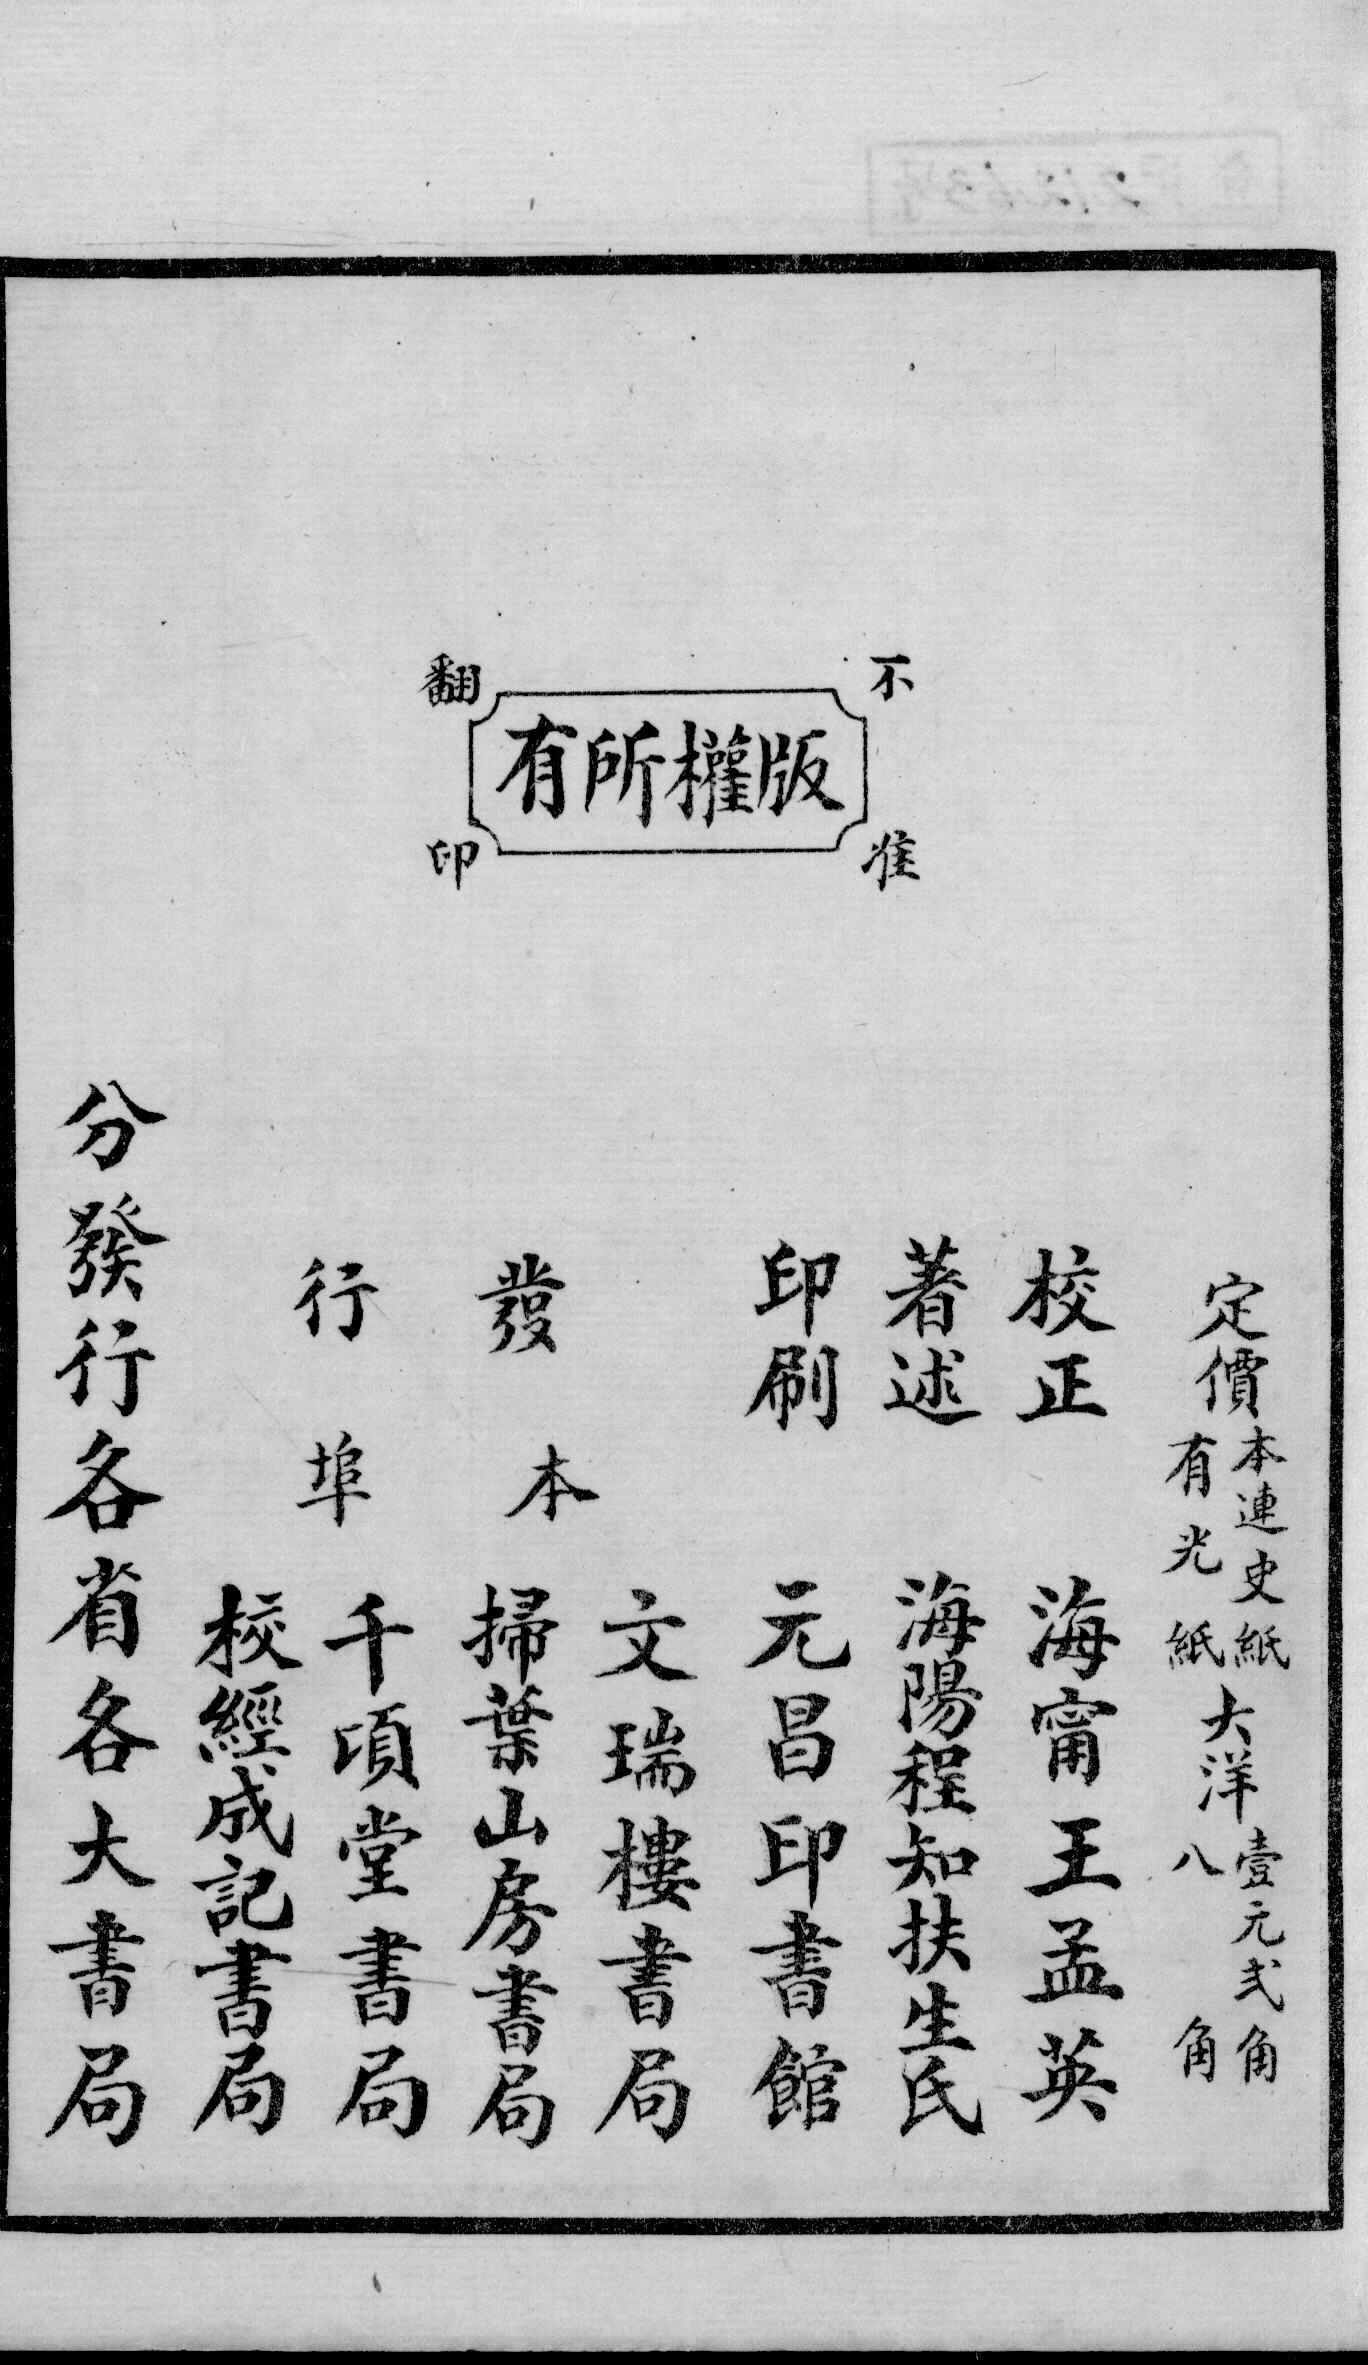 不准
版權所有
翻印
定價
本連史紙
有光紙
大洋
壹元弍角
八角
校正 海甯王孟英
著述 海陽程知扶生氏
印刷 元昌印書館
本埠
發行
文瑞樓書局
掃葉山房書局
千頃堂書局
校經成記書局
分發行各省各大書局